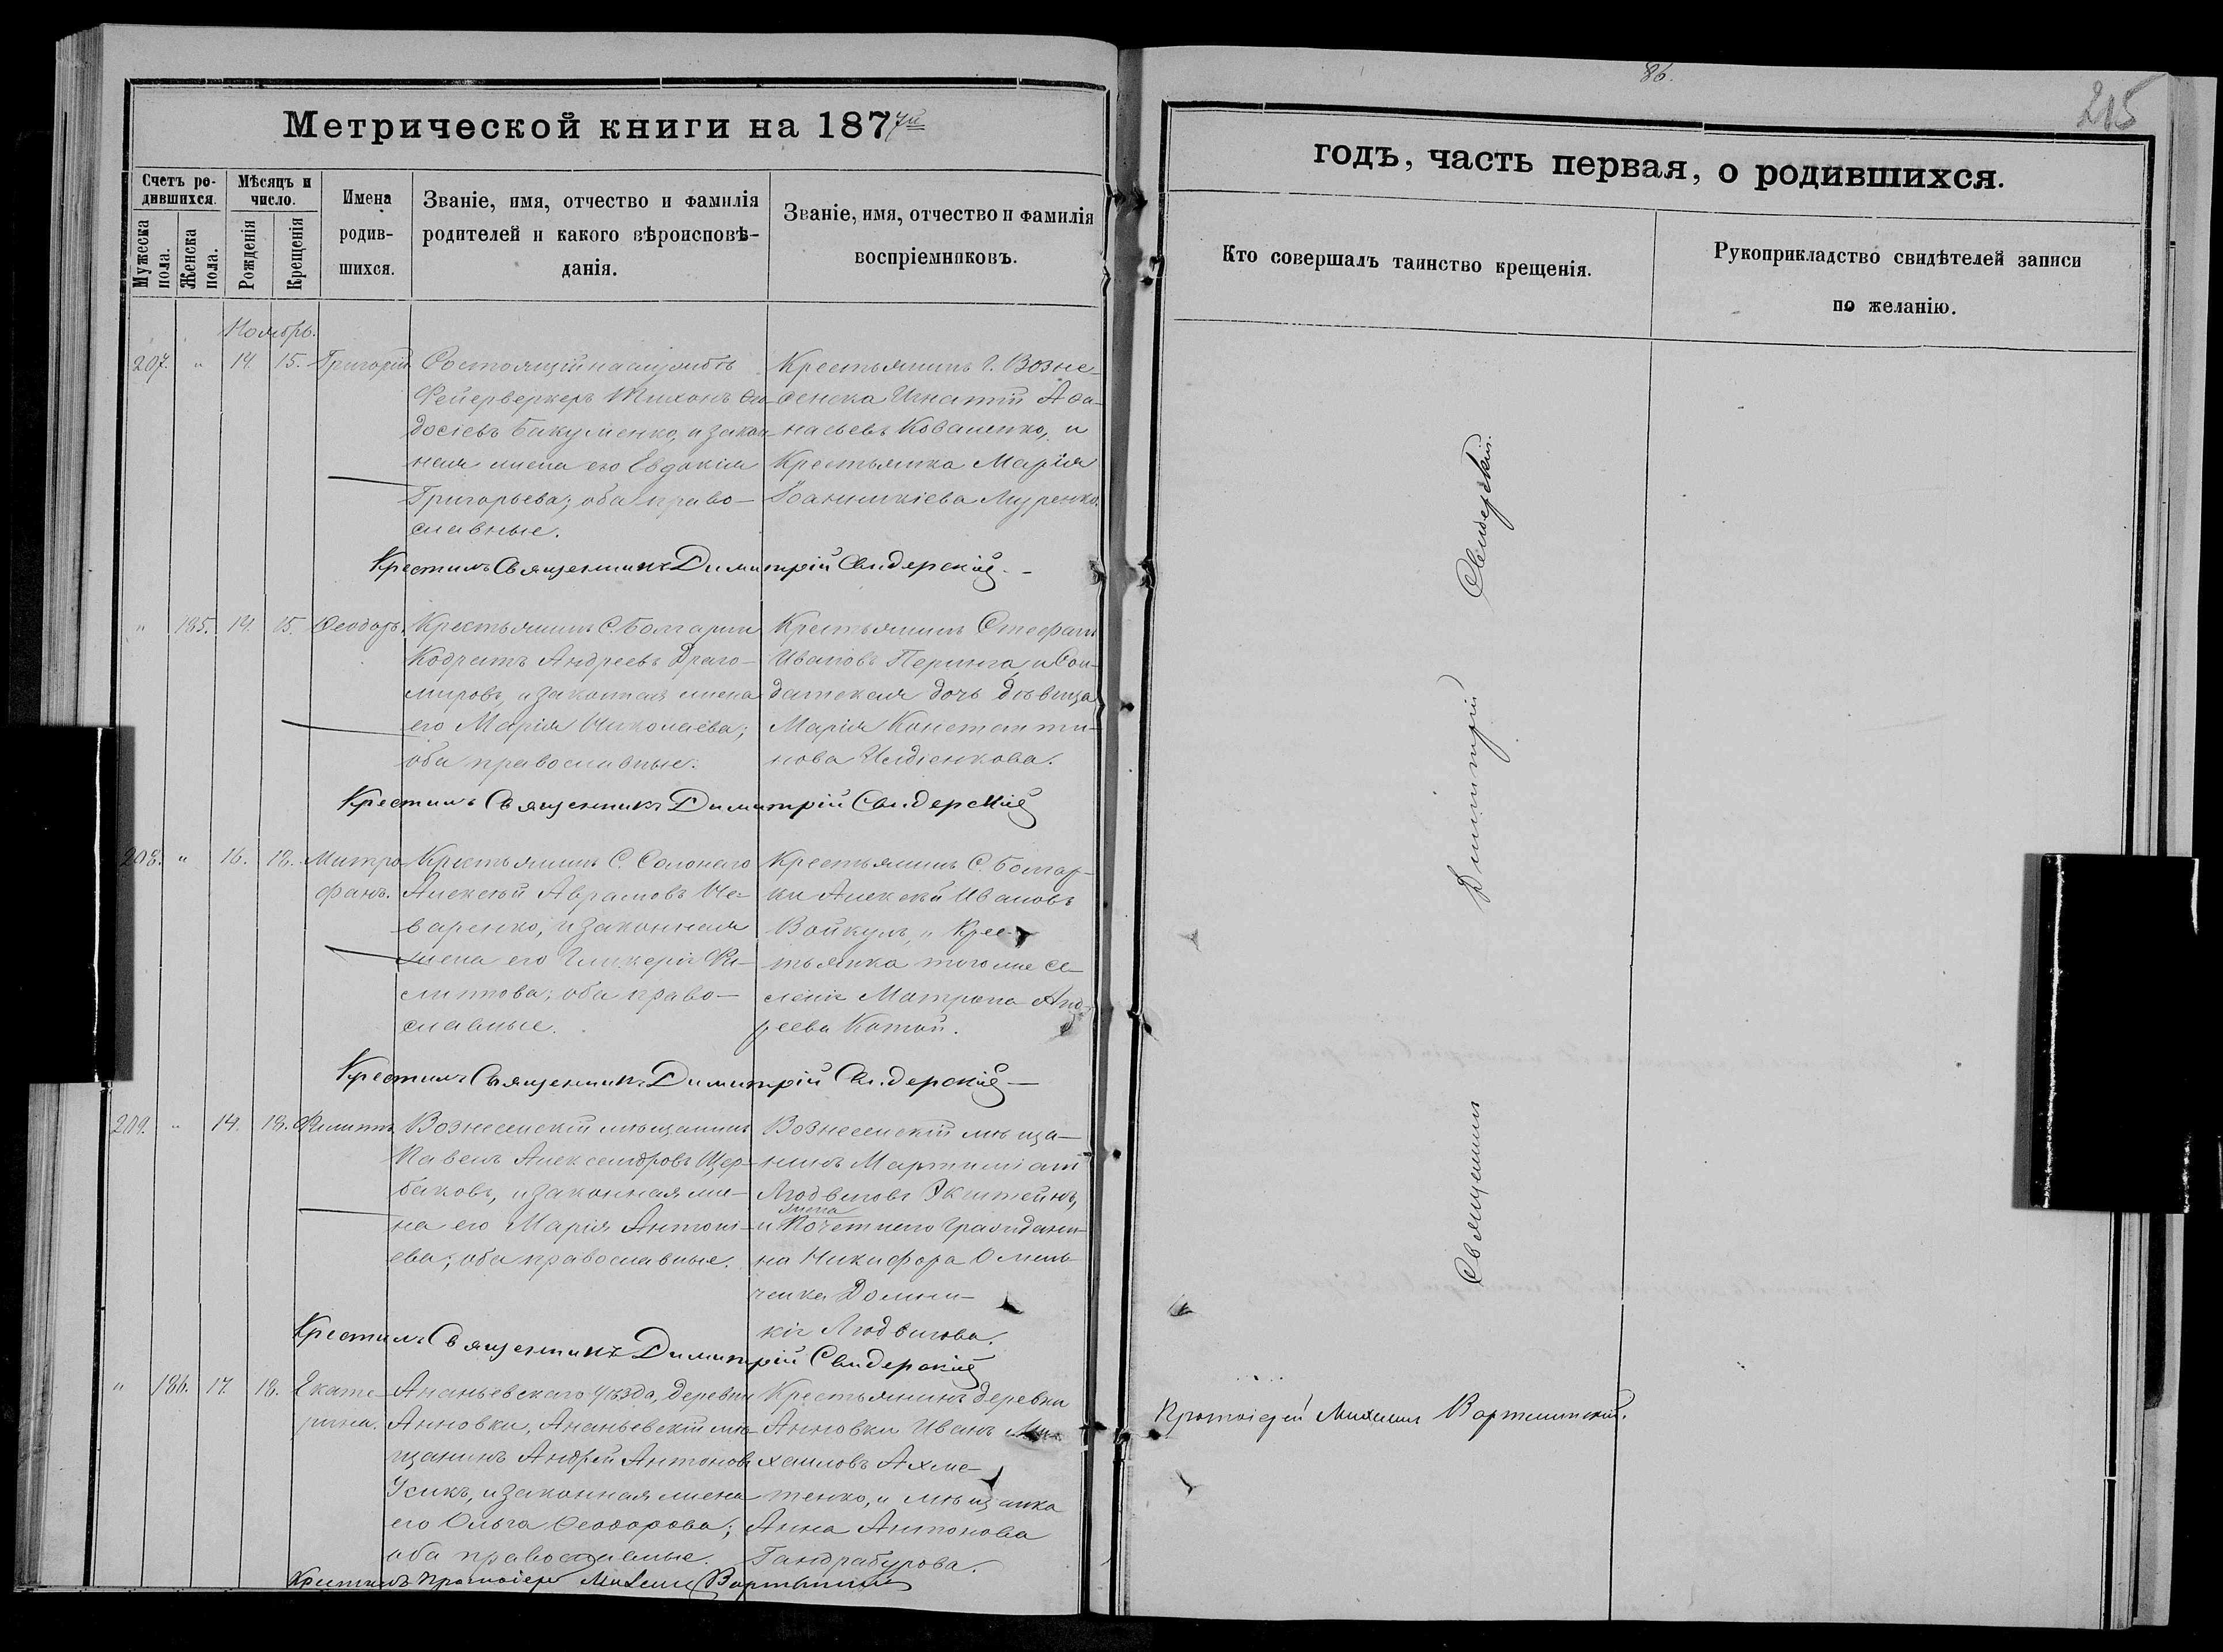 Метрической книги на 187 7й
86.
215
годъ, часть первая, о родившихся.
Счетъ ро-
дившихся.
Мужеска пола.
Женска пола.
Мѣсяцъ и число.
Рожденія
Крещенія
Имена
родив-
шихся.
Званіе, имя, отчество и фамилія
родителей и какого вѣроисповѣ-
данія.
Званіе, имя, отчество и фамилія
воспріемниковъ.
Кто совершалъ таинство крещенія.
Рукоприкладство свидѣтелей записи
по желанію.
Ноябрь.
207. " 14. 15. Григорій
Состоящій на службѣ
Фейерверкеръ Тихонъ Ѳео-
досіевъ Бакуменко, и закон-
ная жена его Евдокія
Григорьева; оба право-
славные.
Крестьянинъ г. Возне-
сенска Игнатій Аѳа-
насьевъ Коваленко, и
Крестьянка Марія
Іоанникіева Муренко.
Крестилъ Священникъ Димитрій Свидерскій.
" 185. 14. 15. Ѳеодора.
Крестьянинъ С. Болгарки
Кодратъ Андреевъ Драго-
мировъ, и законная жена
его Марія Николаева;
оба православные.
Крестьянинъ Стефанъ
Ивановъ Перинга, и Сол-
датская дочь дѣвица
Марія Константи-
нова
Крестилъ Священникъ Димитрій Свидерскій
208. " 16. 18. Митро-
фанъ.
Крестьянинъ С. Солонаго
Алексѣй Аврамовъ Че-
варенко, и законная
жена его Гликерія Фи-
липпова; оба право-
славные.
Крестьянинъ С. Болгар-
ки Алексѣй Ивановъ
Войкулъ, и Крес-
тьянка того же се-
ленія Матрона Анд-
реева
Крестилъ Священникъ Димитрій Свидерскій
209. " 14. 18. Филиппъ
Вознесенскій мѣщанинъ
Павелъ Александровъ Щер-
баковъ, и законная же-
на его Марія Антоні-
ева; оба православные.
Вознесенскій мѣща-
нинъ Мартиніанъ
Людвиговъ Экштейнъ,
жена
и Почетнаго Граждани-
на Никифора Омель-
ченка Домни-
кія Людвигова.
Крестилъ Священникъ Димитрій Свидерскій
" 186. 17. 18. Екате-
рина.
Ананьевскаго уѣзда, деревни
Анновки, Ананьевскій мѣ-
щанинъ Андрей Антоновъ
Усикъ, и законная жена
его Ольга Ѳеодорова;
оба православные.
Крестьянинъ деревни
Анновки Иванъ Ми-
хаиловъ Ахме-
тенко, и мѣщанка
Анна Антонова
Гандрабурова.
Крестилъ Протоіерей Михаилъ
Священникъ Димитрій Свидерскій.
Протоіерей Михаилъ